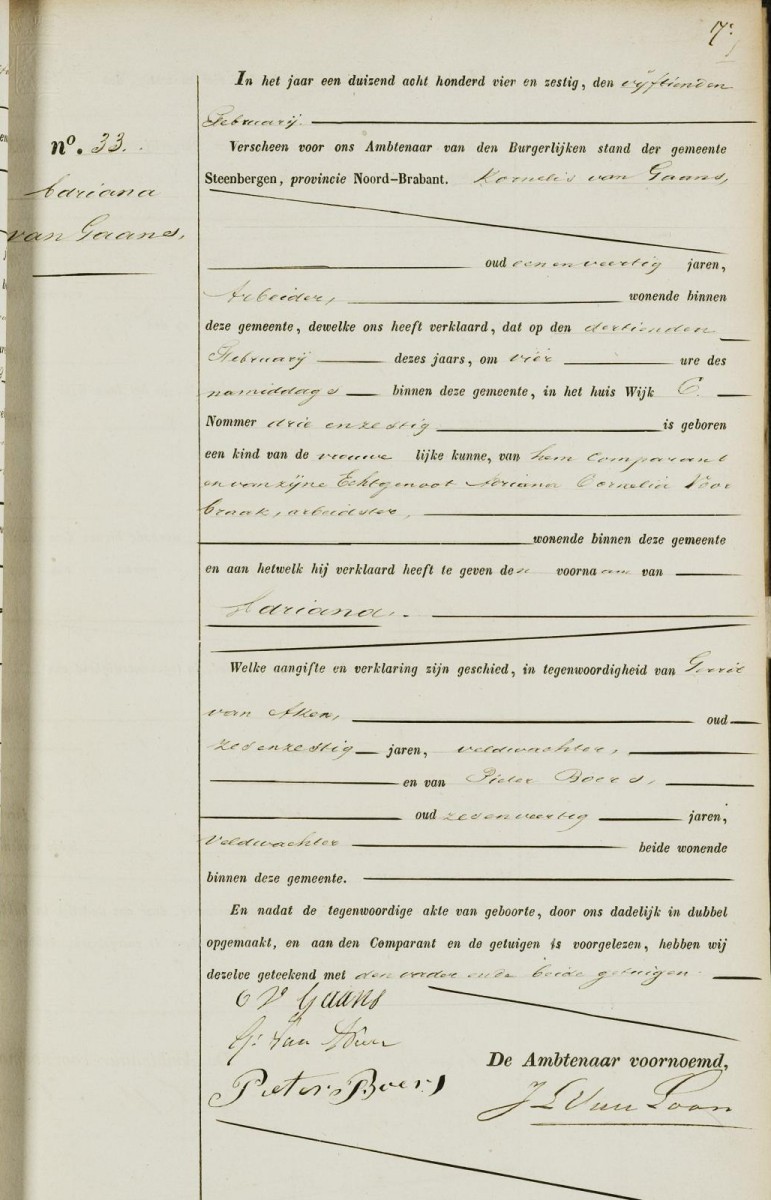 7.
In het jaar een duizend acht honderd vier en zestig, den vijftienden
Februarij.
nº. 33.
Verscheen voor ons Ambtenaar van den Burgerlijken stand der gemeente
Adriana
Steenbergen, provincie Noord-Brabant. Kornelis van Gaans,
van Gaans,
oud een en veertig jaren,
Arbeider, wonende binnen
deze gemeente, dewelke ons heeft verklaard, dat op den dertienden
Februarij dezes jaars, om vier ure des
namiddags binnen deze gemeente, in het huis Wijk C.
Nommer drie en zestig is geboren
een kind van de vrouwe lijke kunne, van hem Comparant
en van zijne Echtgenoot Adriana Cornelia Voor
braak, arbeidster,
wonende binnen deze gemeente
en aan hetwelk hij verklaard heeft te geven den voornaam van
Adriana.
Welke aangifte en verklaring zijn geschied, in tegenwoordigheid van Gerrit
van Aken, oud
zes en zestig jaren, veldwachter,
en van Pieter Boers,
oud zes en veertig jaren,
veldwachter beide wonende
binnen deze gemeente.
En nadat de tegenwoordige akte van geboorte, door ons dadelijk in dubbel
opgemaakt, en aan den Comparant en de getuigen is voorgelezen, hebben wij
dezelve geteekend met den vader en de beide getuigen.
C V Gaans
G: Van Aken
De Ambtenaar voornoemd,
Pieter Boers
J L Van Loon